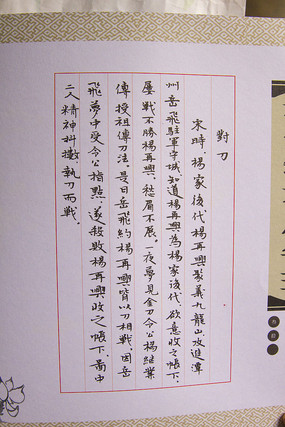 對刀
宋時，楊家後代楊再興聚義九龍山，攻進潭
州岳飛駐軍辛城，知道楊再興為楊家後代，欲意收之帳下，
屢戰不勝楊再興，愁眉不展。一夜夢見金刀令公楊継業
傳授祖傳刀法。是日岳飛約楊再興皆以刀相戰，因岳
飛夢中受令公指點，遂殺敗楊再興收之帳下，畵中
二人精神抖擻，執刀而戰。